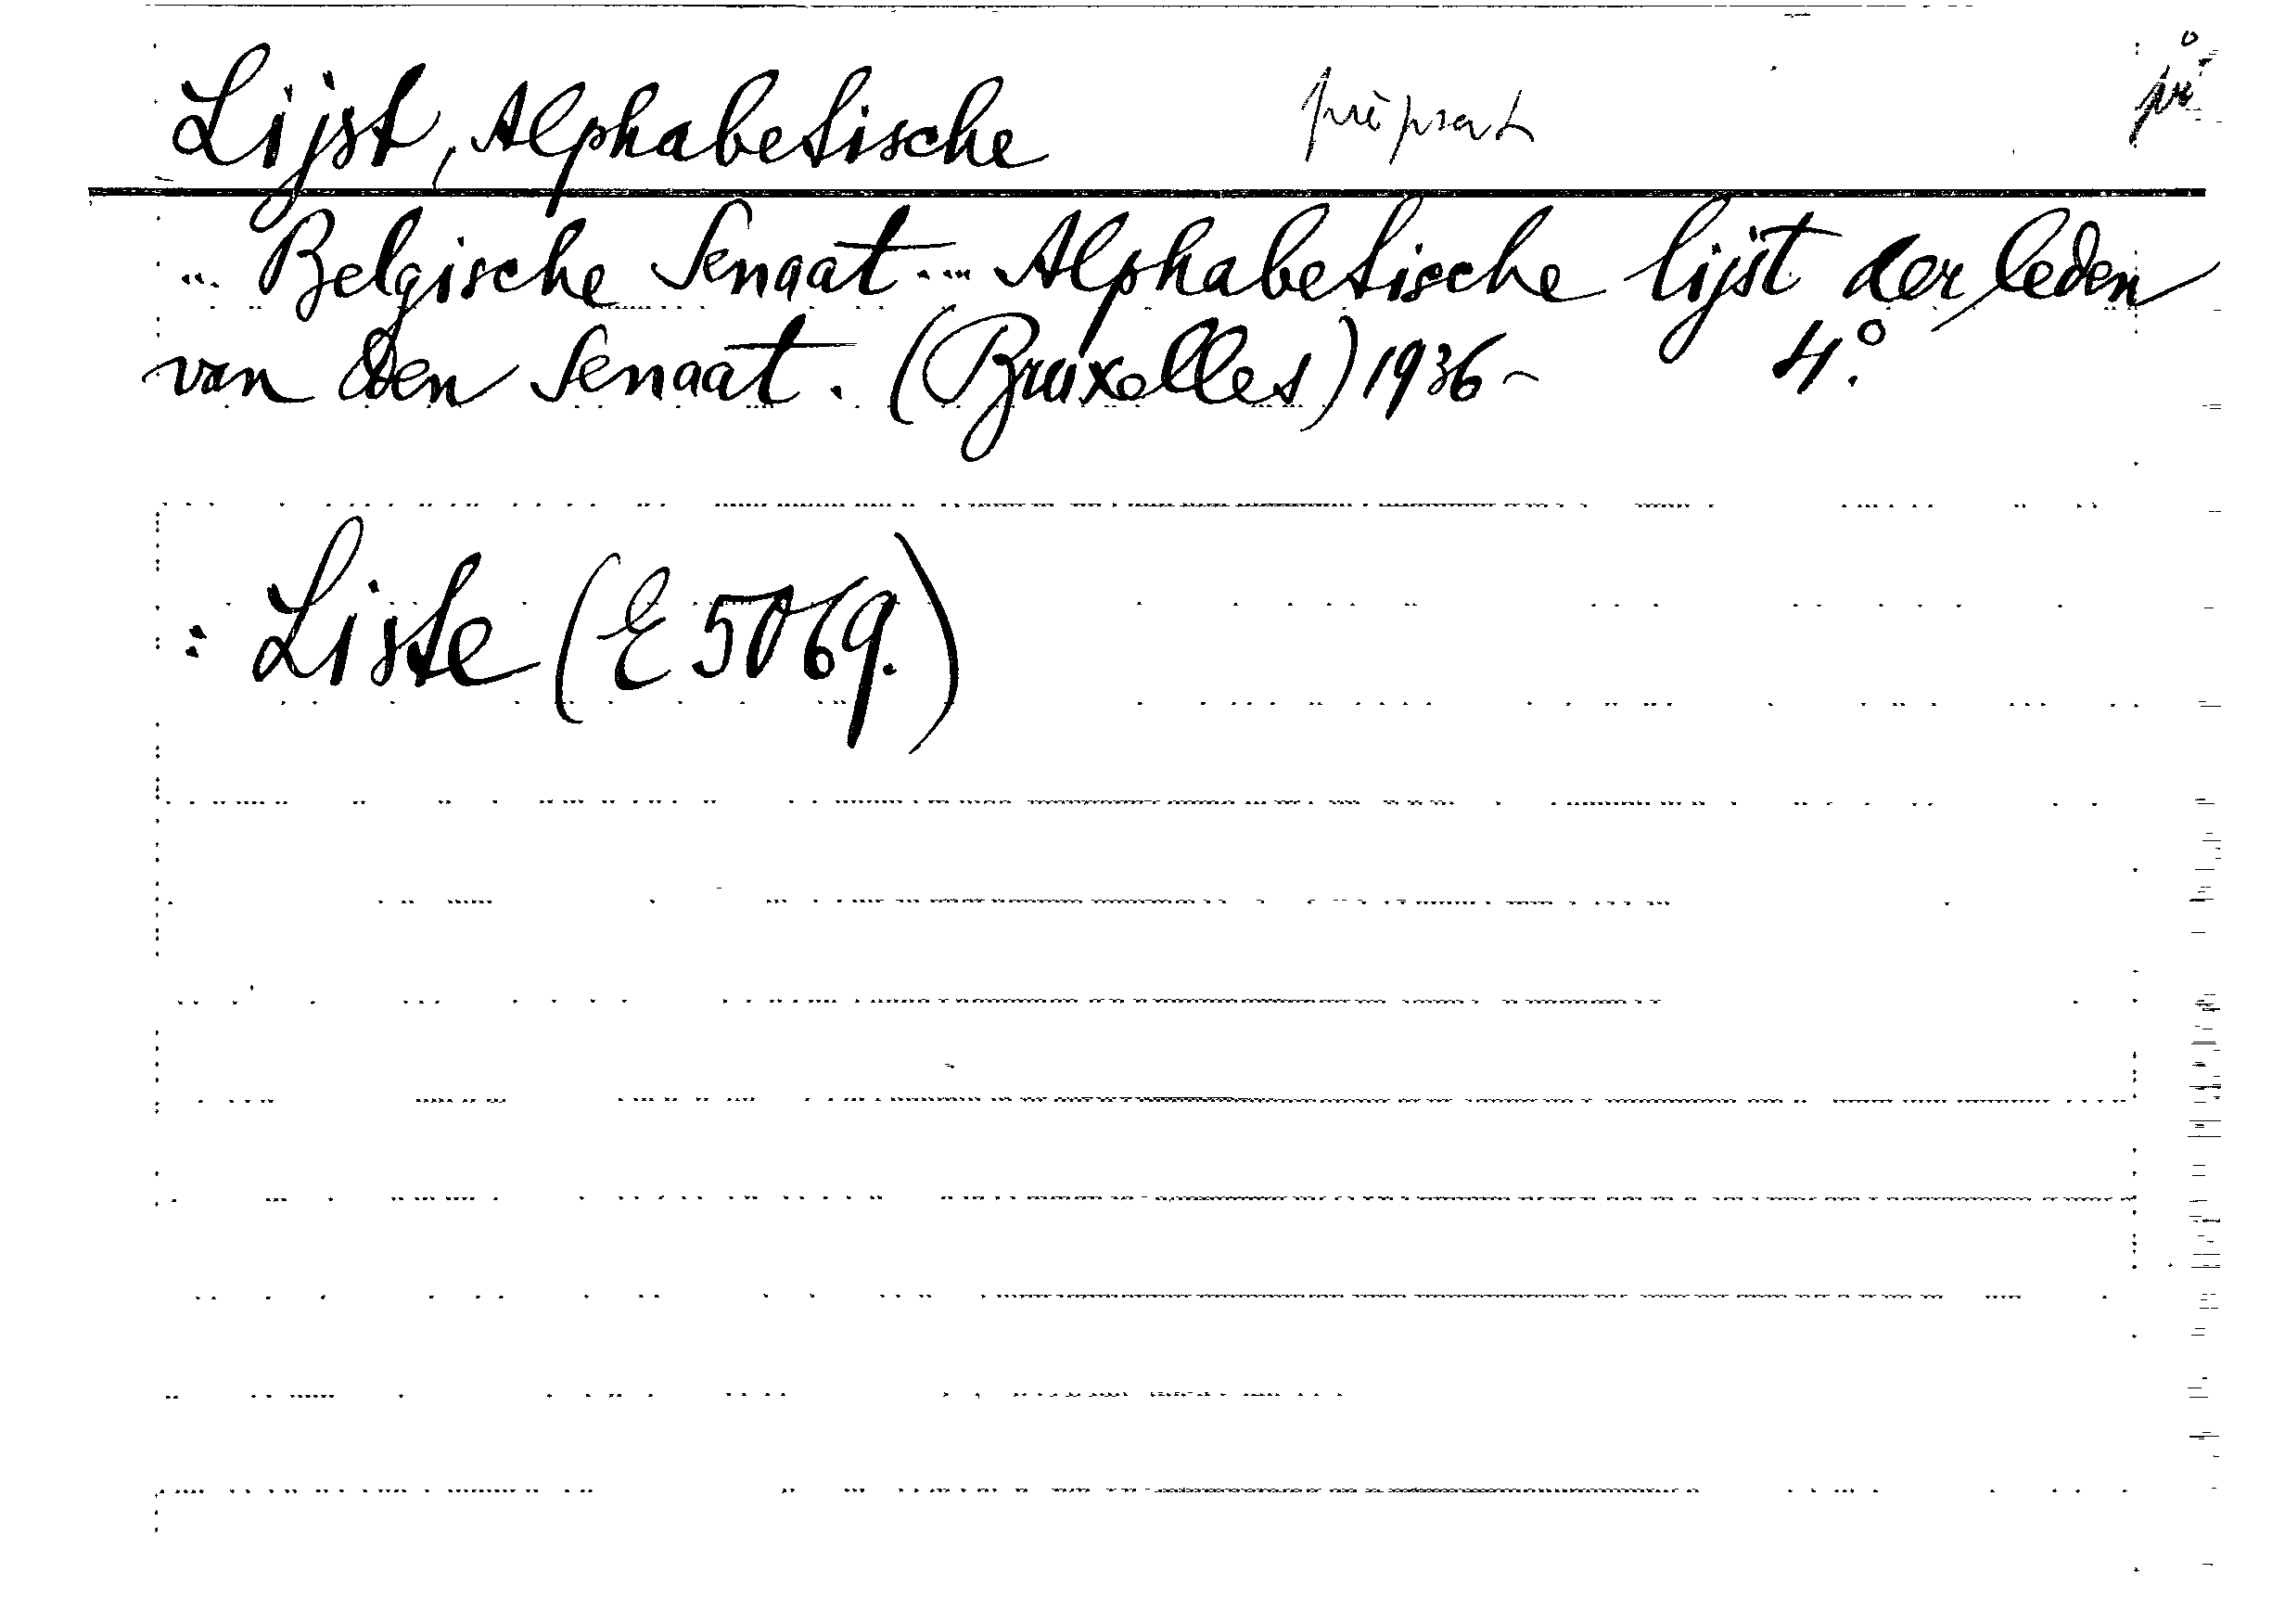 Lijst, Alphabetische
... Belgische Senaat ... Alphabetische lijst der leden
van den Senaat. (Bruxelles) 1936 - 4°.
: Liste (E 5069.)